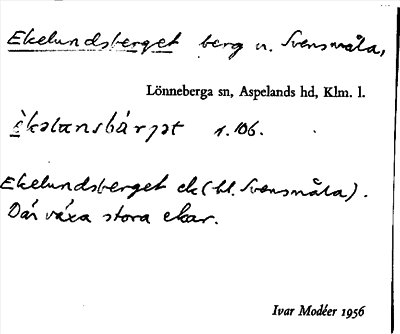 Ekelundsberget berg n. Svensmåla,
Lönneberga sn, Aspelands hd, Klm. l.
1.106.
Ekelundsberget ek (bl. Svensmåla).
Där växa stora ekar.
Ivar Modéer 1956